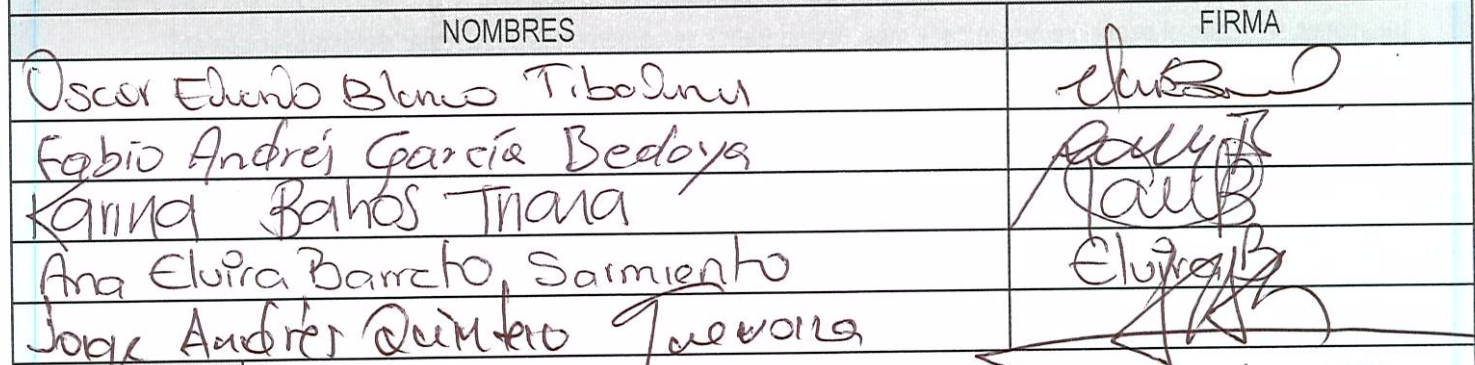 NOMBRES FIRMA
Oscar Eduardo Blanco
Fabio Andrés García Bedoya
Karina Bahos Triana
Ana Elvira Barreto Sarmiento Elvira B
Jorge Andrés Quintero Guevara